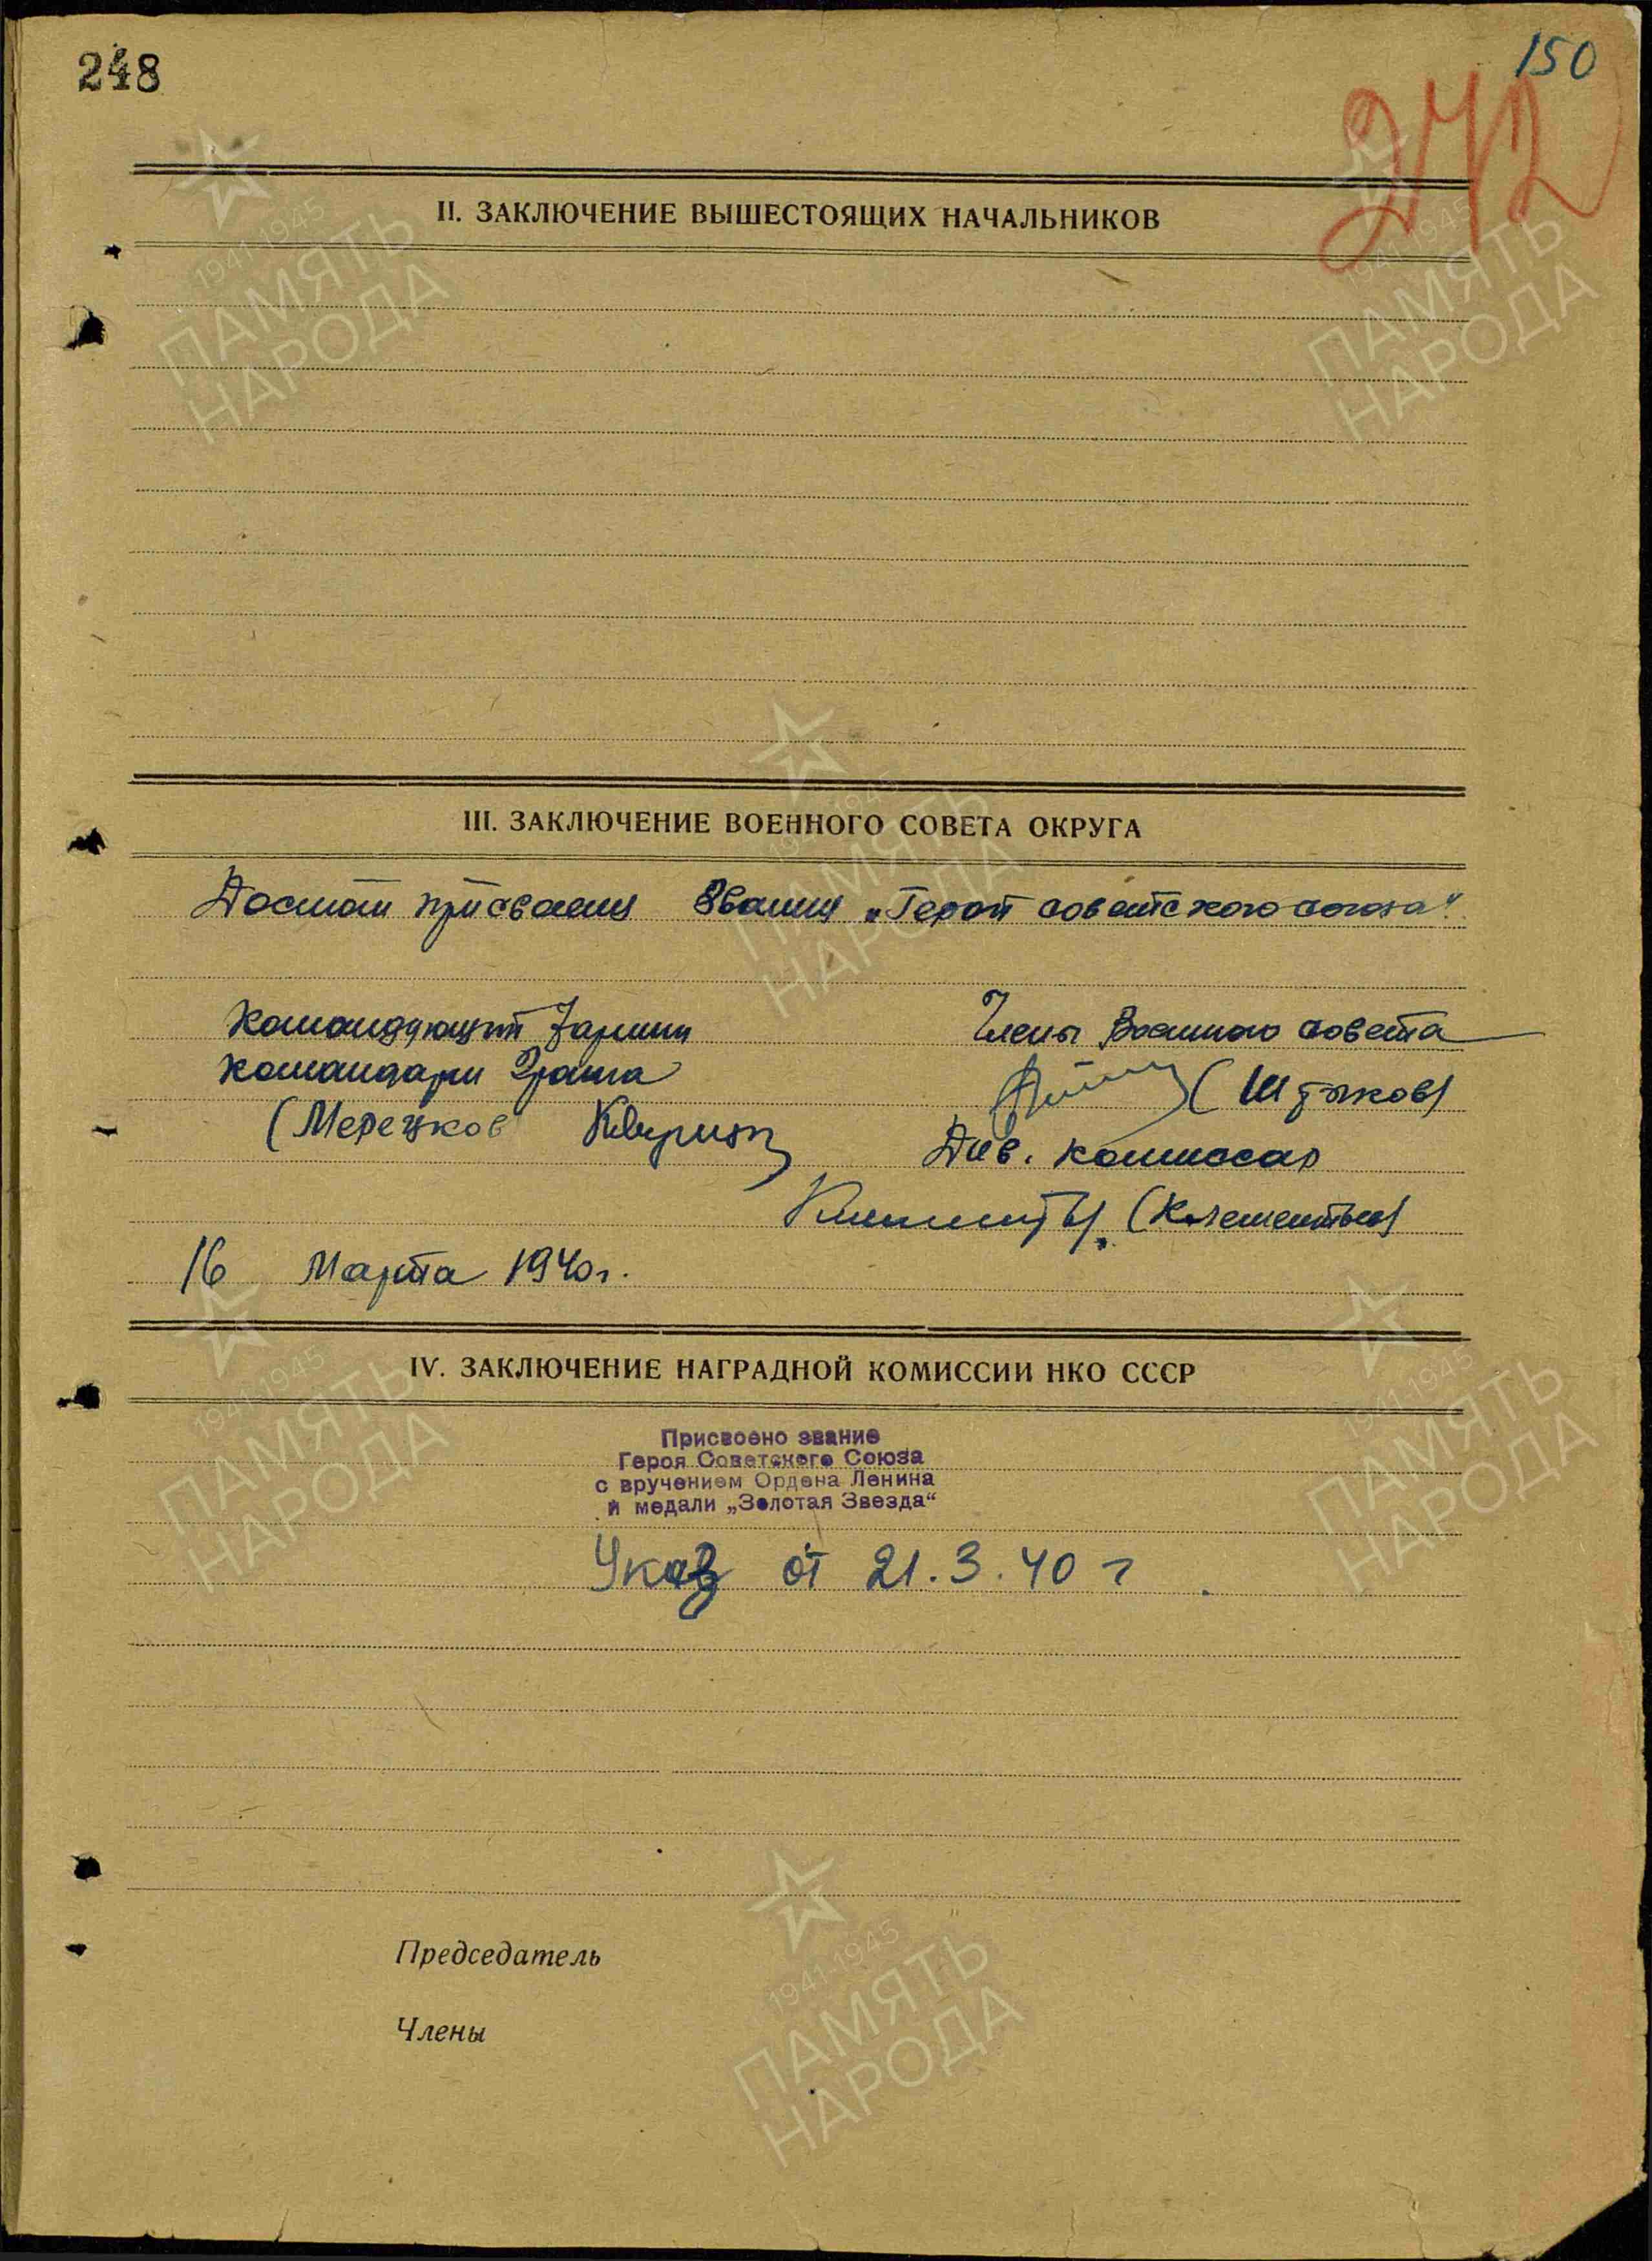 248
150
272
II. ЗАКЛЮЧЕНИЕ ВЫШЕСТОЯЩИХ НАЧАЛЬНИКОВ
III. ЗАКЛЮЧЕНИЕ ВОЕННОГО СОВЕТА ОКРУГА
Достоин присвоения звания „Герой советского союза".
Командующий 7 армии
Члены Военного совета
командарм 2 ранга
(Штыков)
(Мерецков
Див. комиссар
(Клементьев)
16 Марта 1940 г.
IV. ЗАКЛЮЧЕНИЕ НАГРАДНОЙ КОМИССИИ НКО СССР
Присвоено звание
Героя Советского Союза
с вручением Ордена Ленина
и медали „Золотая Звезда“
Указ от 21.3.40 г
Председатель
Члены
1941-1945
ПАМЯТЬ
НАРОДА